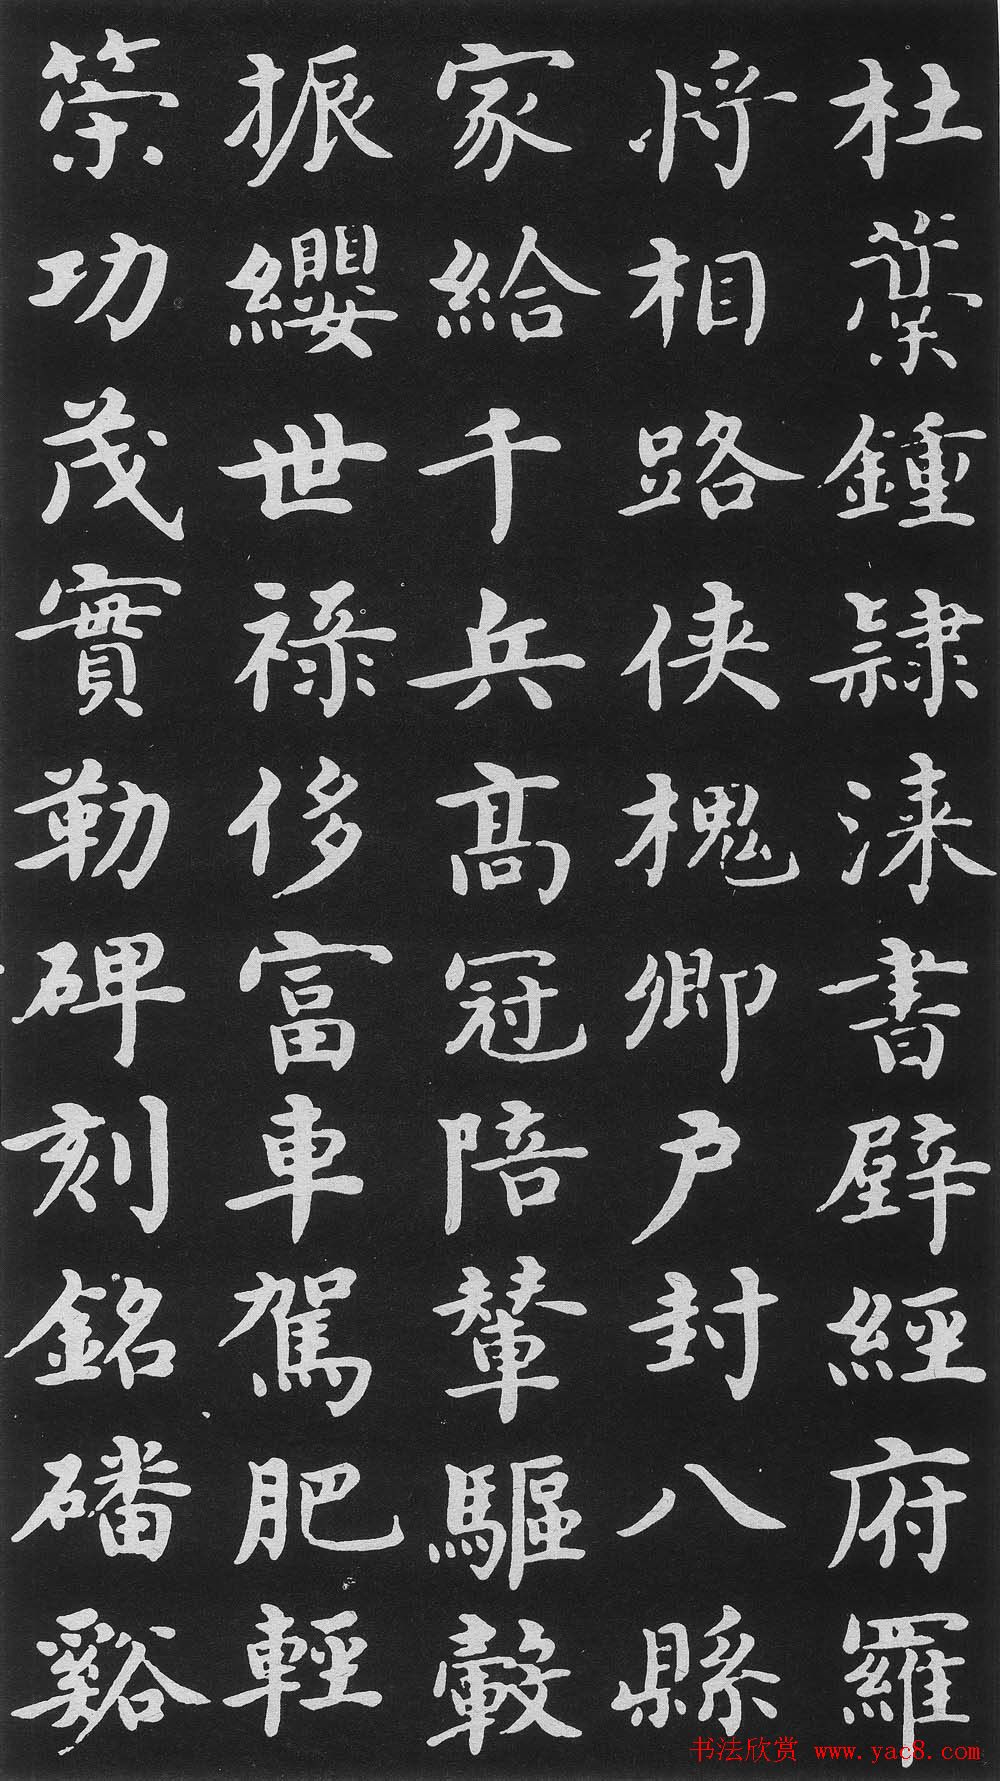 杜稾鍾隷漆書壁經府羅
將相路俠槐卿户封八縣
家給千兵髙冠陪輦驅轂
振纓世祿侈富車駕肥輕
策功茂實勒碑刻銘磻谿
书法欣赏 www.yac8.com